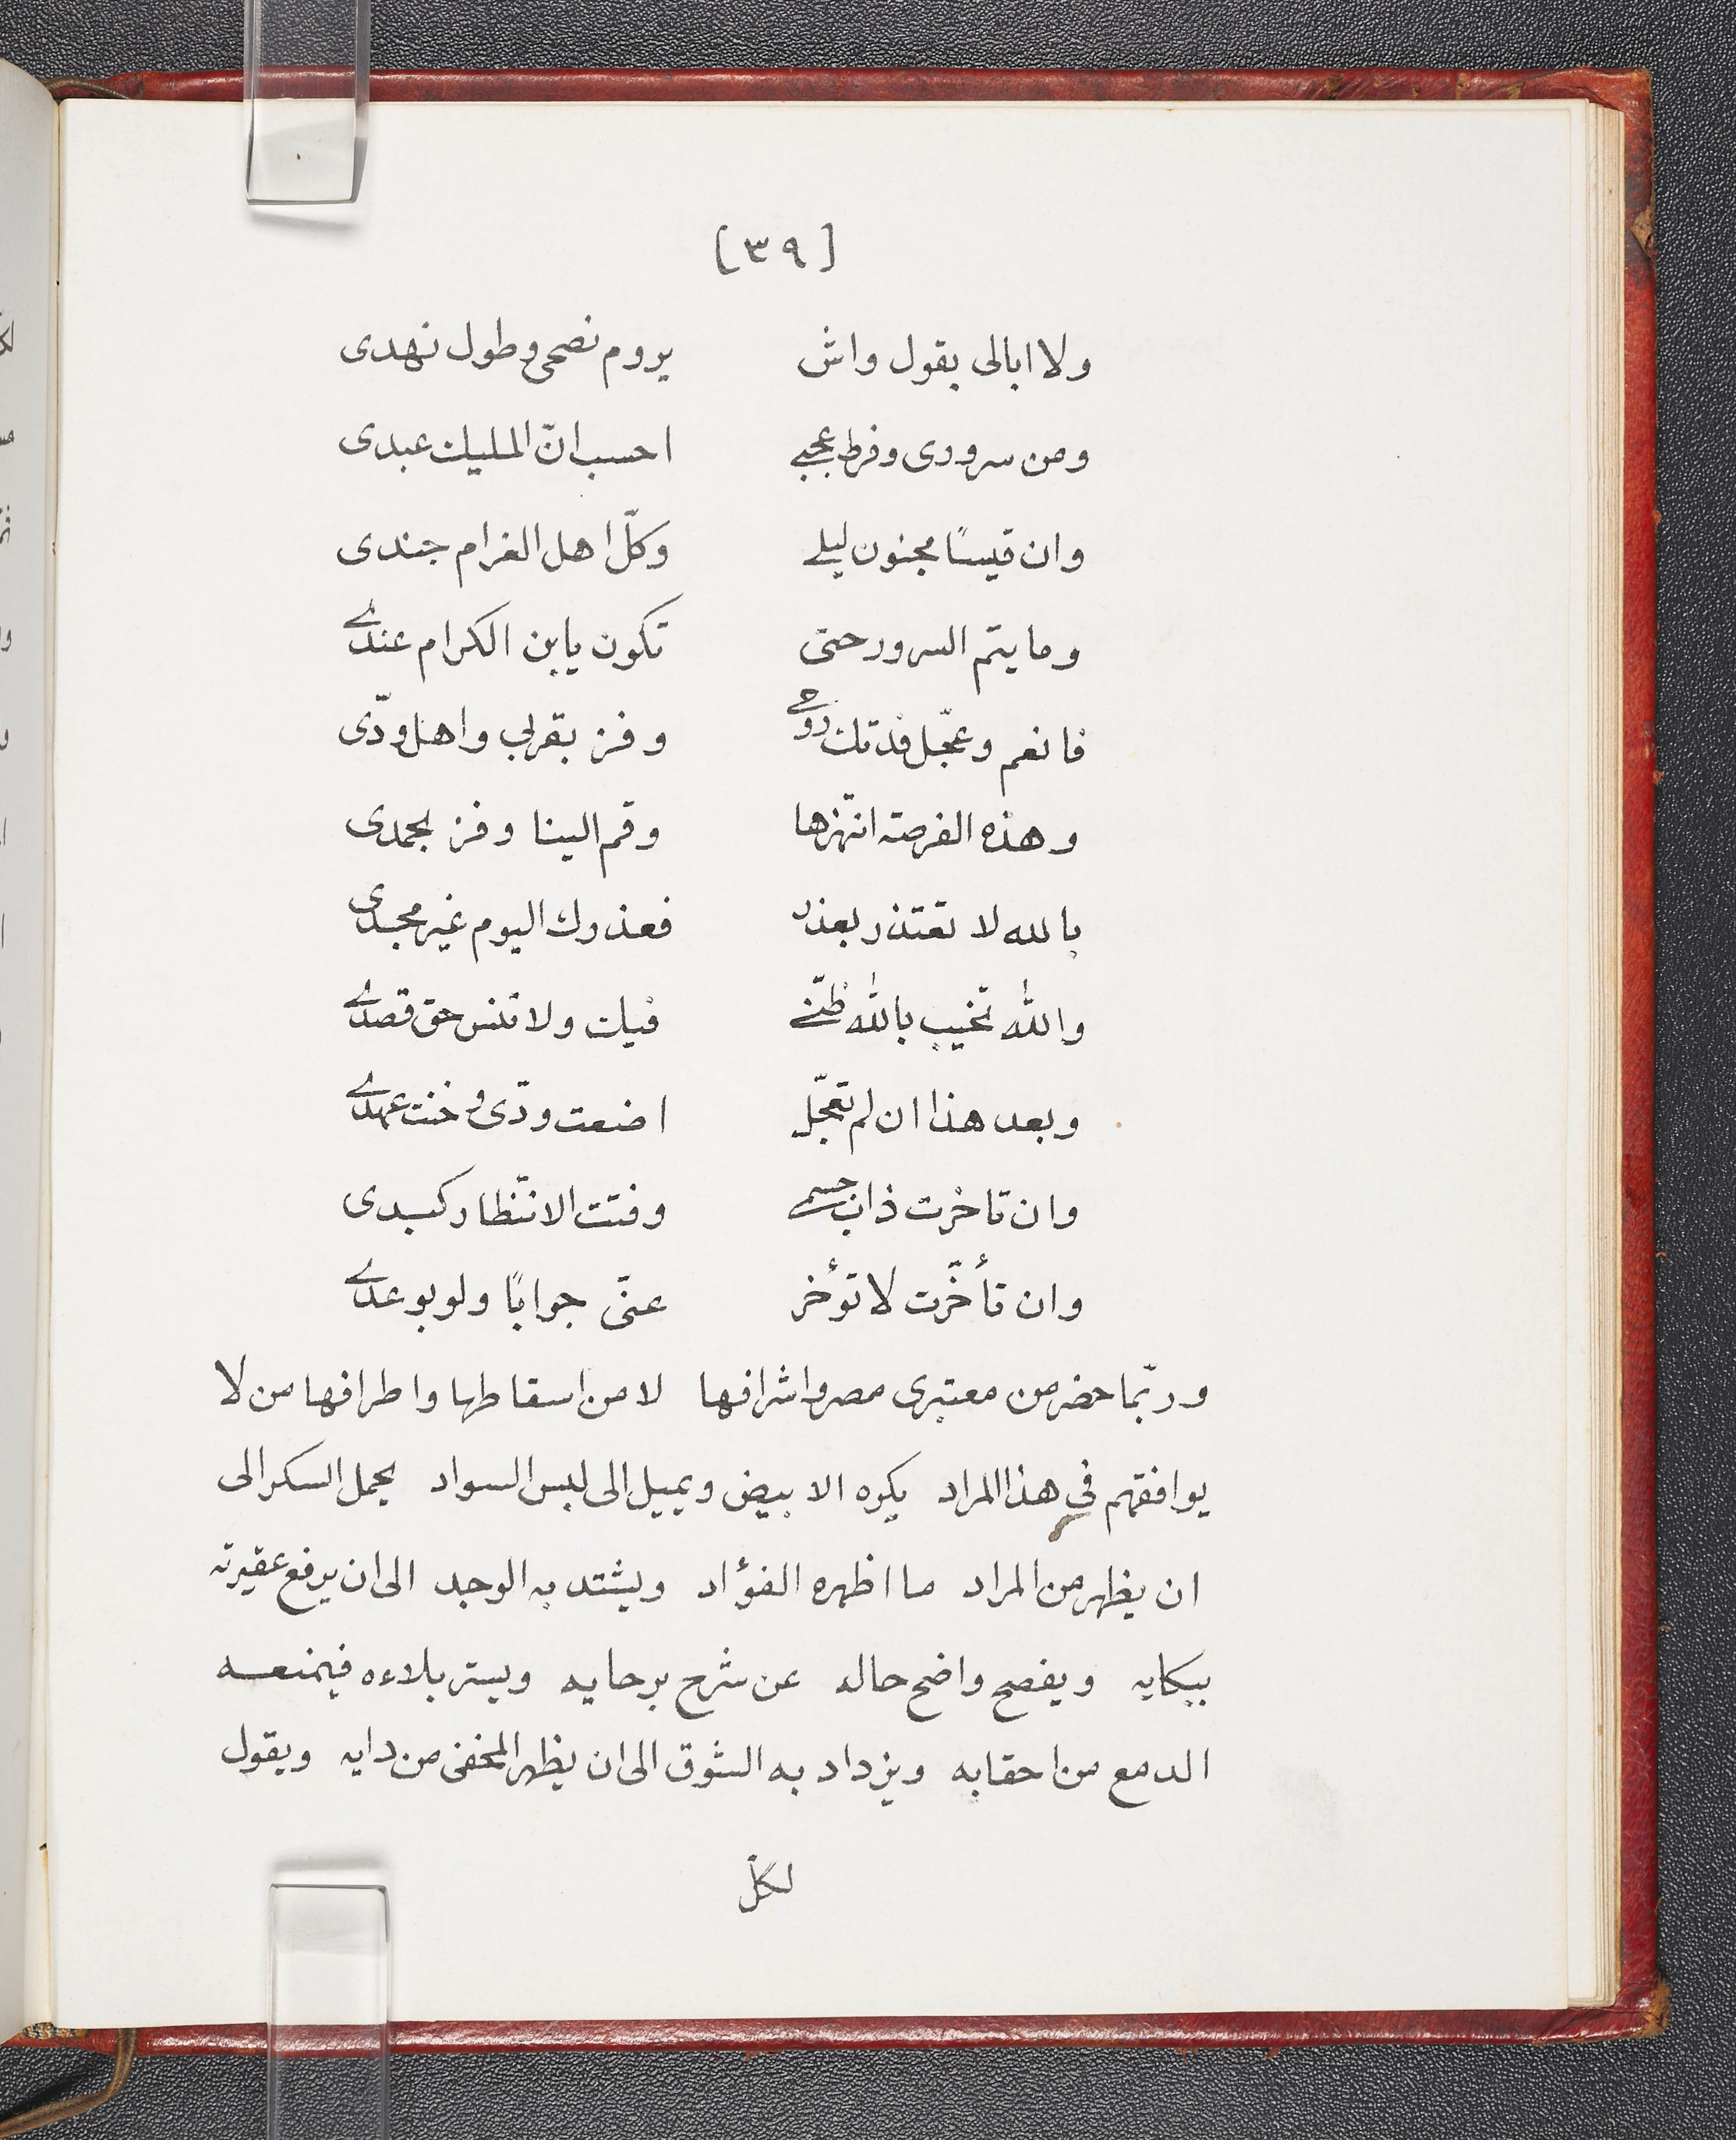 [٣٩]
ولا ابالى بقول واش يروم نصحى وطول نهدى
ومن سرورى وفرط عجبى احسب انّ المليك عبدى
وان قيسًا مجنون ليلى وكلّ اهل الغرام جندى
وما يتم السرور حتى تكون يابن الكرام عندى
فانعم وعجّل فدتك روحى وفز بقربى واهل ودّى
وهذه الفرصة انتهزها وقم الينا وفز بحمدى
بالله لا تعتذر بعذر فعذرك اليوم غير مجدى
والله تخيب بالله ظنّى فيك ولا تنس حق قصدى
وبعد هذا ان لم تعجّل اضعت ودّى وخنت عهدى
وان تاخرت ذاب جسمى وفتت الانتظار كبدى
وان تأخّرت لا تؤخر عنّى جوابًا ولو بوعدى
وربّما حضر من معتبرى مصر واشرافها لا من اسقاطها واطرافها من لا
يوافقهم في هذا المراد يكره الابيض ويميل الى لبس السواد يحمل السكر الى
ان يظهر من المراد ما اظهره الفؤاد ويشتد به الوجد الى ان يرفع عقيرته
ببكايه ويفصح واضح حاله عن شرح برحايه ويستر بلاءه فيمنعه
الدمع من احقابه ويزداد به الشوق الى ان يظهر المخفى من دايه ويقول
لكلّ